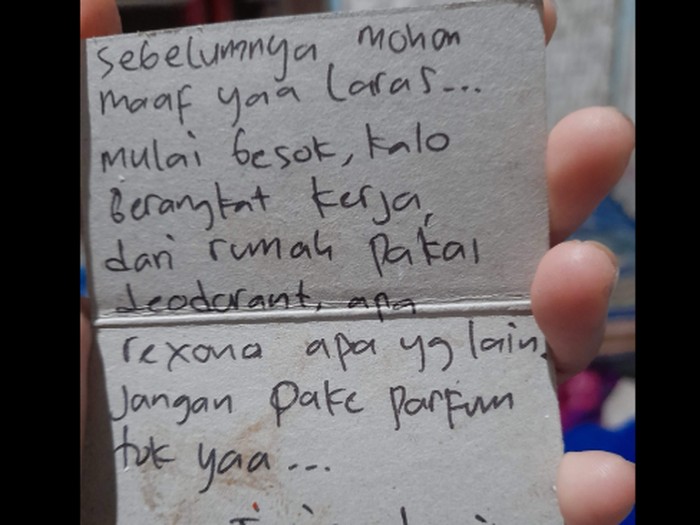 sebelumnya mohon
maaf yaa Laras...
mulai besok, kalo
berangkat kerja,
dari rumah pakai
deodorant, apa
rexona apa yg lain.
Jangan pake parfum
tok yaa...